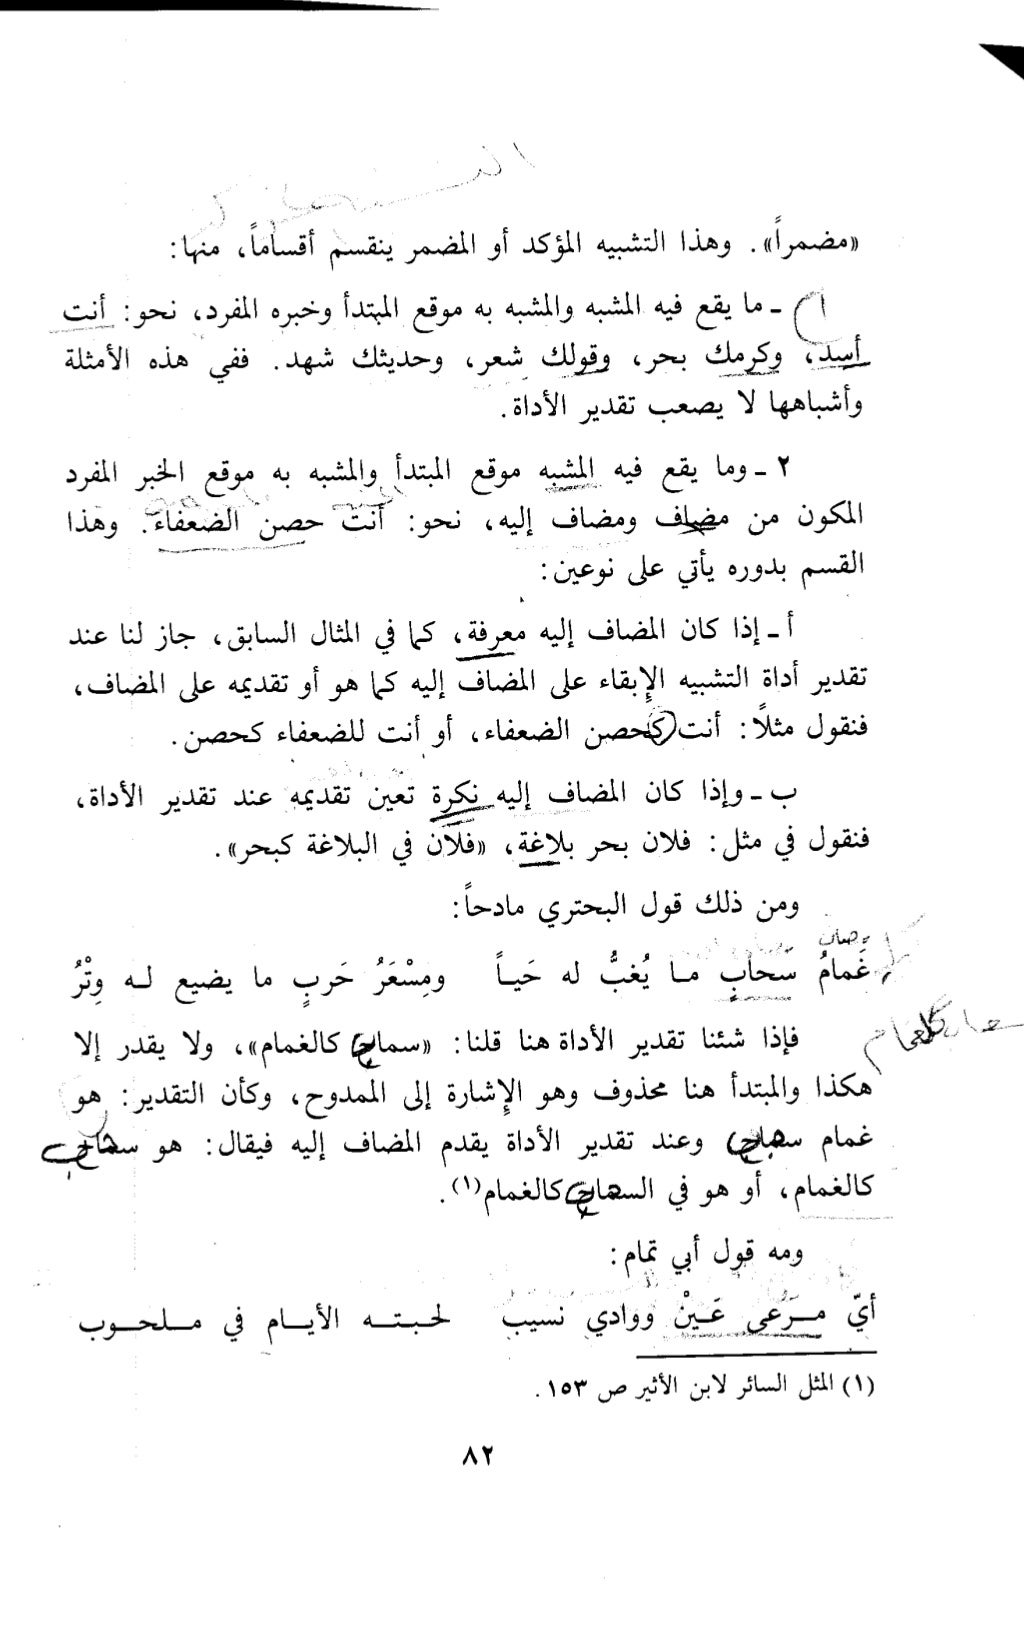 «مضمراً». وهذا التشبيه المؤكد أو المضمر ينقسم أقساماً، منها:
١ ـ ما يقع فيه المشبه والمشبه به موقع المبتدأ وخبره المفرد، نحو: أنت
أسد، وكرمك بحر، وقولك شعر، وحديثك شهد. ففي هذه الأمثلة
وأشباهها لا يصعب تقدير الأداة.
٢ ـ وما يقع فيه المشبه موقع المبتدأ والمشبه به موقع الخبر المفرد
المكون من مضاف ومضاف إليه، نحو: أنت حصن الضعفاء. وهذا
القسم بدوره يأتي على نوعين:
أ ـ إذا كان المضاف إليه معرفة، كما في المثال السابق، جاز لنا عند
تقدير أداة التشبيه الإبقاء على المضاف إليه كما هو أو تقديمه على المضاف،
فنقول مثلًا: أنت كحصن الضعفاء، أو أنت للضعفاء كحصن.
ب ـ وإذا كان المضاف إليه نكرة تعين تقديمه عند تقدير الأداة،
فنقول في مثل: فلان بحر بلاغة، «فلان في البلاغة كبحر».
ومن ذلك قول البحتري مادحاً:
غَمامُ سَحابٍ ما يُغبُّ له حَياً ومِسْعَرُ حَربٍ ما يضيع له وِتْرُ
فإذا شئنا تقدير الأداة هنا قلنا: «سماح كالغمام»، ولا يقدر إلا
هكذا والمبتدأ هنا محذوف وهو الإشارة إلى الممدوح، وكأن التقدير: هو
غمام سماح وعند تقدير الأداة يقدم المضاف إليه فيقال: هو سماح
كالغمام، أو هو في السماح كالغمام(١).
ومه قول أبي تمام:
أيّ مَرْعى عَيْنْ ووادي نسيب لحبته الأيام في ملحوب
(١) المثل السائر لابن الأثير ص ١٥٣.
٨٢